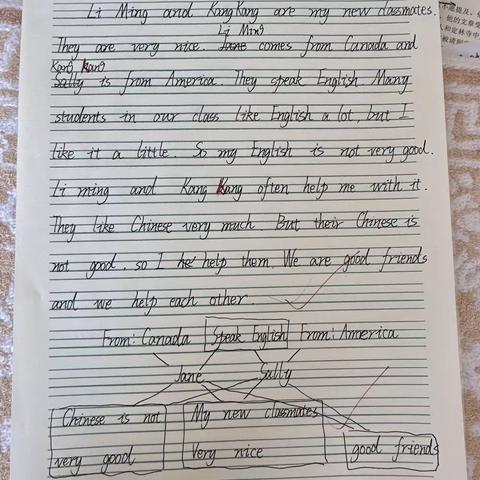 Li Ming and KangKang are my new classmates.
Li Ming
They are very nice. Jane comes from Canada and
Kang kang
Sally is from America. They speak English Many
students in our class like English a lot, but I
like it a little. So my English is not very good.
Li ming and Kang Kang often help me with it.
They like Chinese very much But their Chinese is
not good. so I help them. We are good friends
and we help each other.
From: Canada Speak English From: America
Jane Sally
Chinese is not My new classmates
very good Very nice good friends